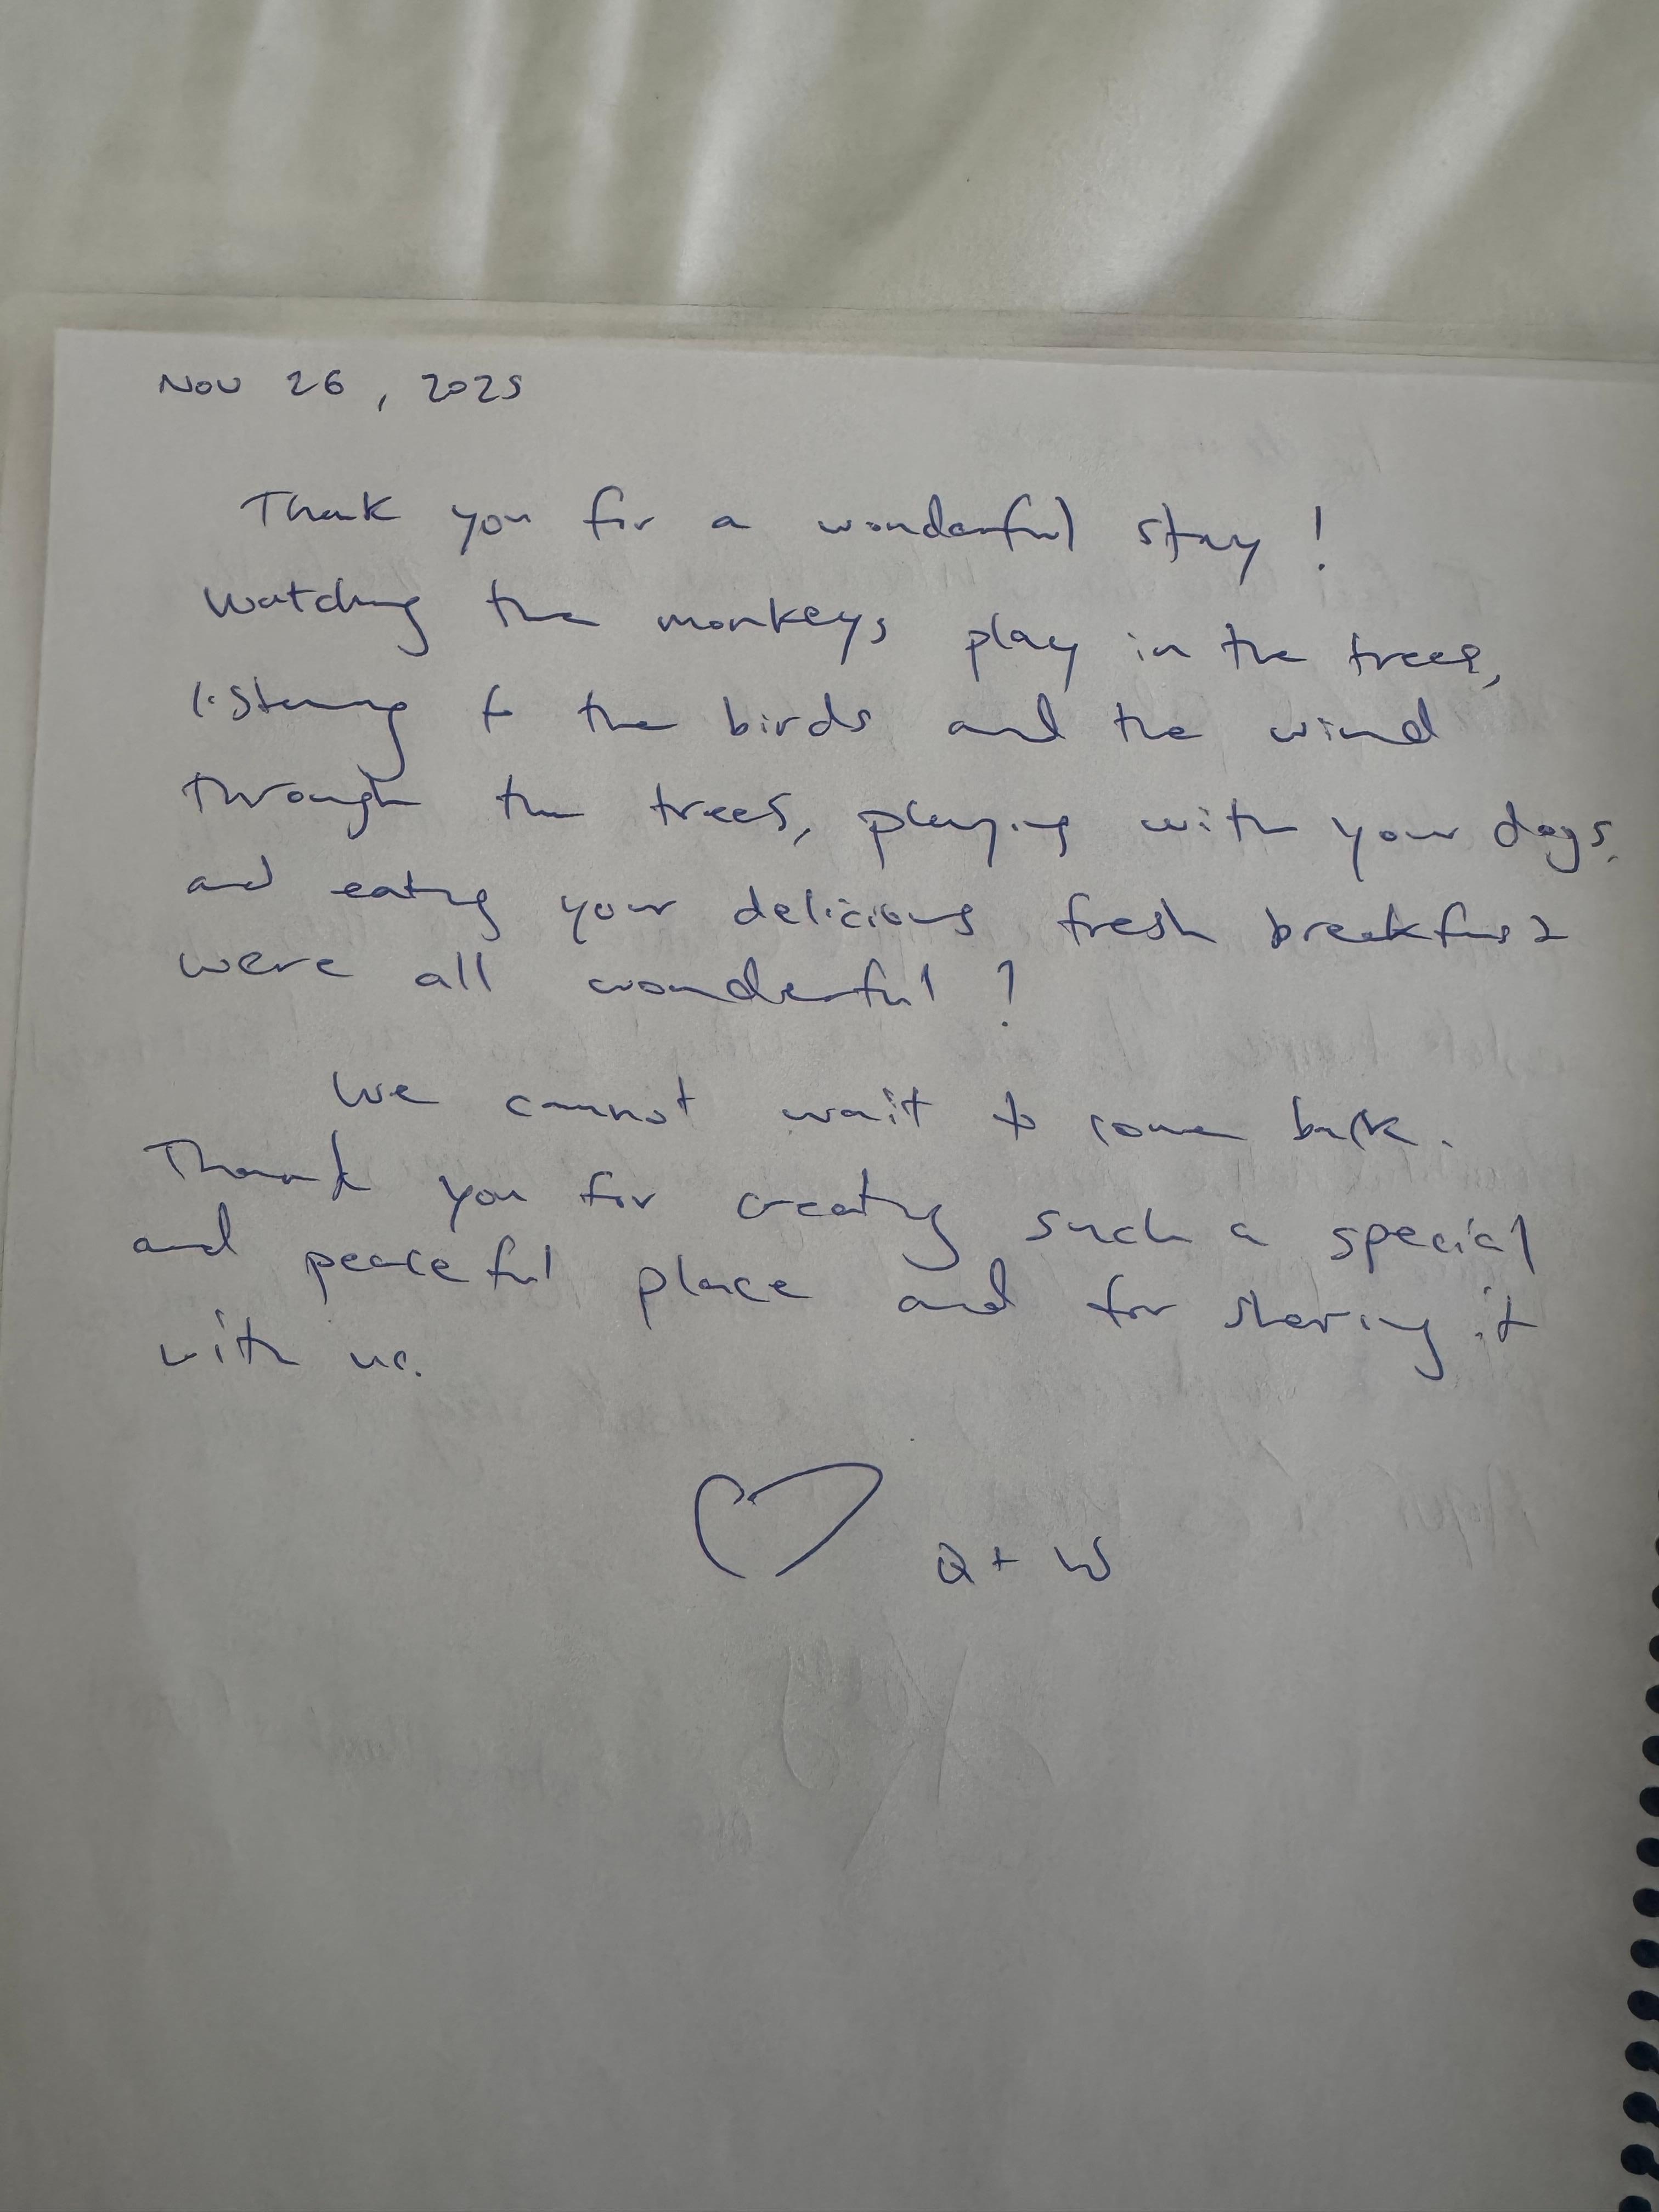 Nov 26, 2025
Thank you for a wonderful stay!
Watching the monkeys play in the trees,
listening to the birds and the wind
through the trees, playing with your dogs,
and eating your delicious fresh breakfast
were all wonderful!
We cannot wait to come back.
Thank you for creating such a special
and peaceful place and for sharing it
with us.
♡ Q + W